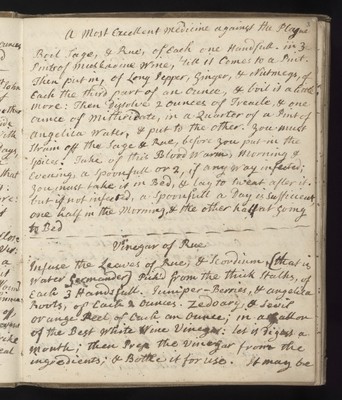 A Most Excellent medicine against the Plague
Boil Sage, & Rue, of Each one Handfull. in 3
Pints of Muskadine Wine, till it Comes to a Pint.
Then put in, of Long Pepper, Ginger, & Nutmegs, of
Each the third part of an Ounce, & boil it a little
more: Then Disolve 2 ounces of Treacle, & one
ounce of Mithridate, in a Quarter of a Pint of
Angelica Water, & put to the other. You must
Strain off the Sage & Rue, before you put in the
Spices. Take of this Blood Warm, Morning &
Evening, a Spoonfull or 2, if any way infected;
You must take it in Bed, & lay to Sweat after it.
but if not infected, a Spoonfull a Day is Sufficient
one half in the Morning, & the other half at going
to Bed
Vinegar of Rue
Infuse the Leaves of Rue, & Scordium (that is
Water Germander) Pick'd from the thick Stalks, of
Each 3 Handfull. Juniper-Berries, & Angelica
roots, of Each 2 Ounces. Zedoary, & Sevil
orange Peel of Each an Ounce; in a Gallon
of the Best White Wine Vinegar. let it Digest a
month; then Press the Vinegar from the
ingredients; & Bottle it for use. It may be